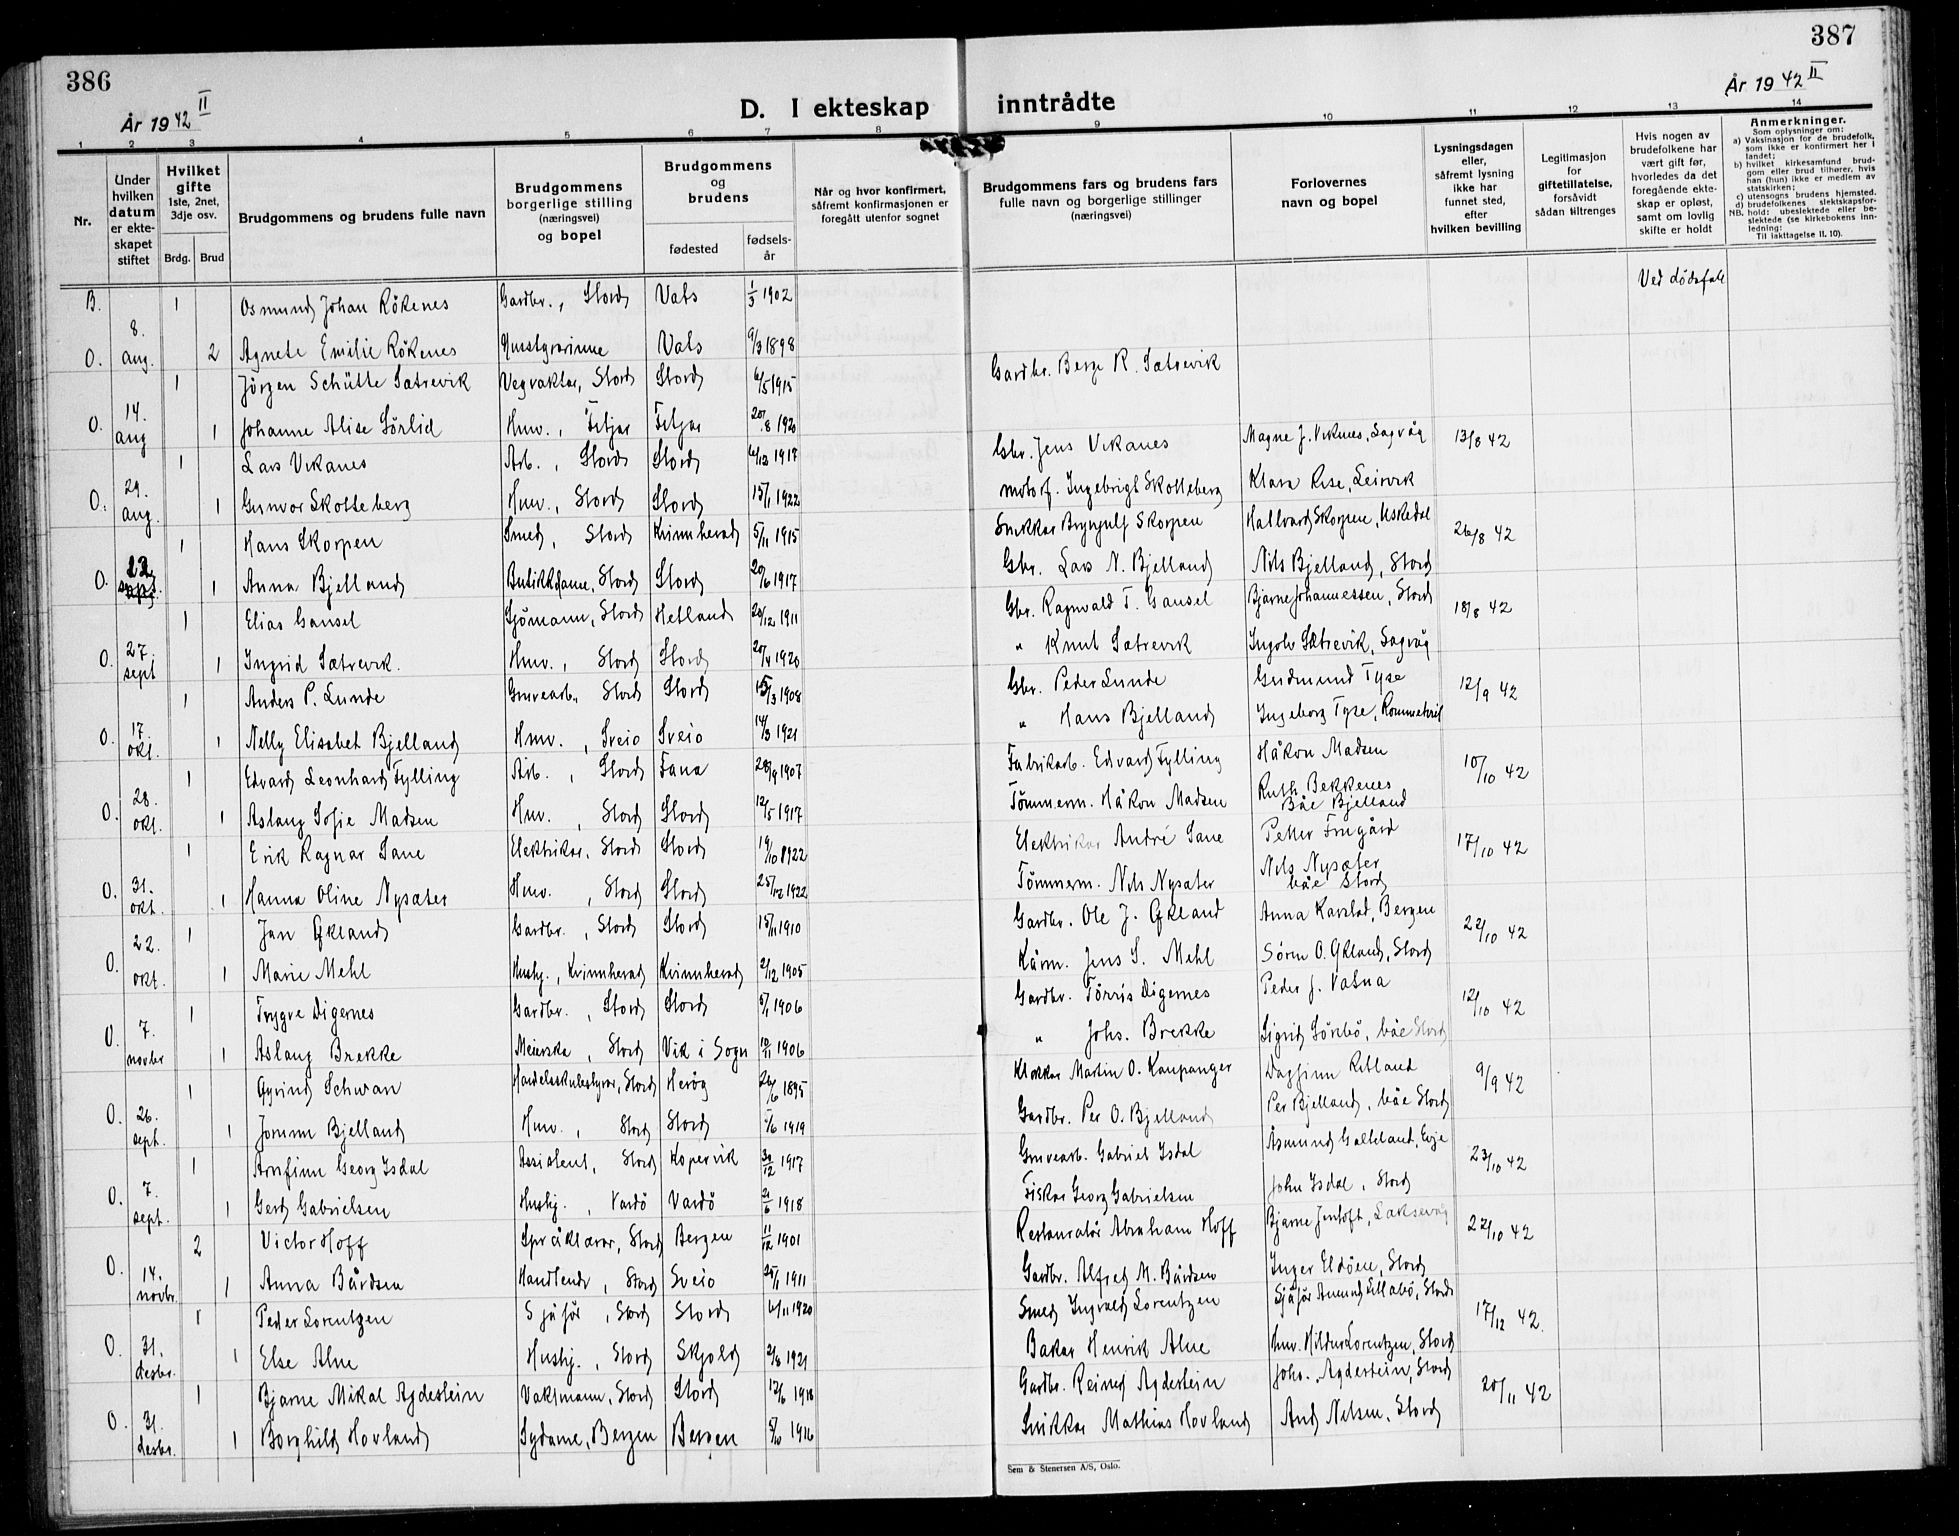 386
387
År 1942 II
År 1942 II
D. I ekteskap inntrådte
1 2 3 4 5 6 7 8 9 10 11 12 13 14
Nr.
Under hvilken datum er ekteskapet stiftet
Hvilket gifte 1ste, 2net, 3dje osv.
Brdg. Brud
Brudgommens og brudens fulle navn
Brudgommens borgerlige stilling (næringsvei) og bopel
Brudgommens og brudens
fødested
fødselsår
Når og hvor konfirmert, såfremt konfirmasjonen er foregått utenfor sognet
Brudgommens fars og brudens fars fulle navn og borgerlige stillinger (næringsvei)
Forlovernes navn og bopel
Lysningsdagen eller, såfremt lysning ikke har funnet sted, efter hvilken bevilling
Legitimasjon for giftetillatelse, forsåvidt sådan tiltrenges
Hvis nogen av brudefolkene har vært gift før, hvorledes da det foregående ekteskap er opløst, samt om lovlig skifte er holdt
Anmerkninger.
Som oplysninger om:
a) Vaksinasjon for de brudefolk, som ikke er konfirmert her i landet;
b) hvilket kirkesamfund brudgom eller brud tilhører, hvis han (hun) ikke er medlem av statskirken;
c) utensogns brudens hjemsted.
d) brudefolkenes slektskapsforhold: ubeslektede eller beslektede (se kirkebokens innledning:
NB. Til iakttagelse II. 10).
B. 1 Osmund Johan Rökenes Gardbr., Stord Vats 1/3 1902 Ved dödsfall
O. 8. aug. 2 Agnete Emilie Rökenes Husstyrarinne Vats 9/3 1898
1 Jörgen Schütte Sætrevik Vegvaktar, Stord Stord 6/5 1915 Gardbr. Berge R. Sætrevik
O. 14. aug 1 Johanne Alise Sörlid Hmv., Fitjar Fitjar 20/8 1920
1 Lars Vikanes Arb., Stord Stord 6/12 1917 Gbr. Jens Vikanes Magne J. Viknes, Sagvåg 13/8 42
O. 29. aug. 1 Gunvor Skotteberg Hmv., Stord Stord 15/1 1922 motorf. Ingebrigt Skotteberg Klara Rise, Leirvik
1 Hans Skorpen Smed, Stord Kvinnherad 5/11 1915 Snikkar Brynjulf Skorpen Hallvard Skorpen, Uskedal 26/8 42
O. 12. sept. 1 Anna Bjelland Butikkdame, Stord Stord 20/6 1917 Gbr. Lars N. Bjelland Nils Bjelland, Stord
1 Elias Gausel Sjömann, Stord Hetland 20/12 1911 Gbr. Ragnvald T. Gausel Bjarne Johannessen, Stord 18/8 42
O. 27. sept 1 Ingrid Sætrevik. Hmv., Stord Stord 20/4 1920 " Knut Sætrevik Ingolv Sætrevik, Sagvåg
1 Anders P. Lunde Gruvearb., Stord Stord 15/3 1908 Gbr. Peder Lunde Gudmund Tyse 12/9 42
O. 17. okt. 1 Nelly Elisabet Bjelland Hmv., Sveio Sveio 14/3 1921 " Hans Bjelland Ingeborg Tyse, Rommetveit
1 Edvard Leonhard Fylling Arb., Stord Fana 28/9 1907 Fabrikarb. Edvard Fylling Håkon Madsen 10/10 42
O. 28. okt. 1 Aslaug Sofie Madsen Hmv., Stord Stord 12/5 1917 Tömmerm. Håkon Madsen Ruth Bekkenes Båe Bjelland
1 Erik Ragnar Sane Elektrikar, Stord Stord 19/10 1922 Elektrikar André Sane Petter Frugård 17/10 42
O. 31. okt. 1 Hanna Oline Nysæter Hmv., Stord Stord 25/12 1922 Tömmerm. Nils Nysæter Nils Nysæter båe Stord
1 Jan Økland Gardbr., Stord Stord 15/11 1910 Gardbr. Ole J. Økland Anna Karstad, Bergen 22/10 42
O. 22. okt. 1 Marie Mehl Hushj., Kvinnherad Kvinnherad 2/12 1905 Kårm. Jens S. Mehl Sören O. Økland, Stord
1 Trygve Digernes Gardbr., Stord Stord 5/1 1906 Gardbr. Törris Digernes Peder J. Valna 12/10 42
O. 7. novbr 1 Aslaug Brekke Meierske, Stord Vik i Sogn 10/11 1906 " Johs. Brekke Sigrid Sörebö, båe Stord
1 Øyvind Schwan Handelsskulestyrar, Stord Heröy 26/6 1895 Klokkar Martin O. Kaupanger Dagfinn Ritland 9/9 42
O. 26. sept. 1 Jorunn Bjelland Hmv., Stord Stord 5/6 1919 Gardbr. Per O. Bjelland Per Bjelland, båe Stord
1 Arnfinn Georg Isdal Assistent, Stord Kopervik 30/12 1917 Gruvearb. Gabriel Isdal Åsmund Galteland, Evje 23/10 42
O. 7. sept. 1 Gerd Gabrielsen Hushj., Vardö Vardö 2/6 1918 Fiskar Georg Gabrielsen John Isdal, Stord
2 Victor Hoff Språklærar, Stord Bergen 11/12 1901 Restauratör Abraham Hoff Bjarne Jentoft, Laksevåg 22/10 42
O. 14. novbr. 1 Anna Bårdsen Handlende, Stord Sveio 25/1 1911 Gardbr. Alfred M. Bårdsen Inger Eldöen, Stord
1 Peder Lorentzen Sjåför, Stord Stord 6/11 1920 Smed Ingvald Lorentzen Sjåför Amund Lillabö, Stord 17/12 42.
O. 31. desbr. 1 Else Alne Hushj., Stord Skjold 2/8 1921 Bakar Henrik Alne Hmv. Hildur Lorentzen, Stord
1 Bjarne Mikal Agdestein Vaktmann, Stord Stord 12/6 1918 Gardbr. Reinert Agdestein Johs. Agdestein, Stord 20/11 42
O. 31. desbr. 1 Borghild Hovland Sydame, Bergen Bergen 5/10 1916 Snikkar Mathias Hovland And. Nilsen, Stord
Sem & Stenersen A/S, Oslo.